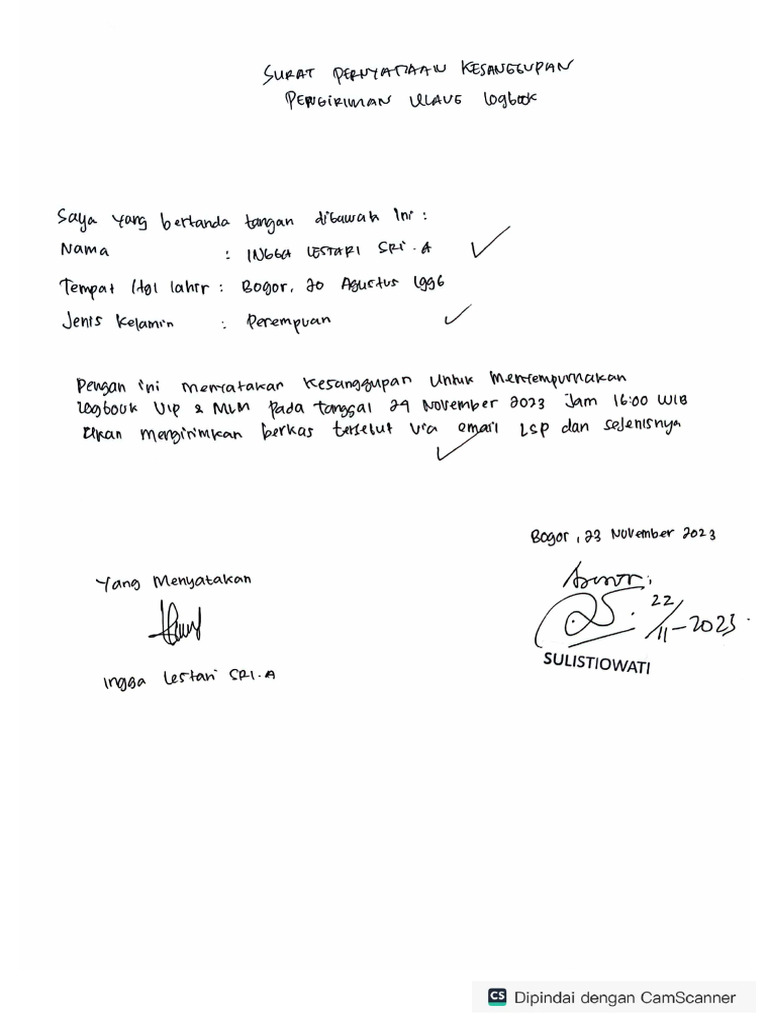 SURAT PERNYATAAN KESANGGUPAN
PENGIRIMAN ULANG Logbook
Saya yang bertanda tangan dibawah Ini :
Nama : INGGA LESTARI SRI . A
Tempat / tgl lahir : Bogor, 20 Agustus 1996
Jenis Kelamin : Perempuan
Dengan ini menyatakan Kesanggupan Untuk Menyempurnakan
Logbook VIP & MLM Pada tanggal 24 November 2023 Jam 16:00 WIB
Akan mengirimkan berkas tersebut via email LSP dan sejenisnya
Bogor, 23 November 2023
Yang Menyatakan
Asesor,
22/11-2023.
SULISTIOWATI
Ingga Lestari SRI.A
CS Dipindai dengan CamScanner